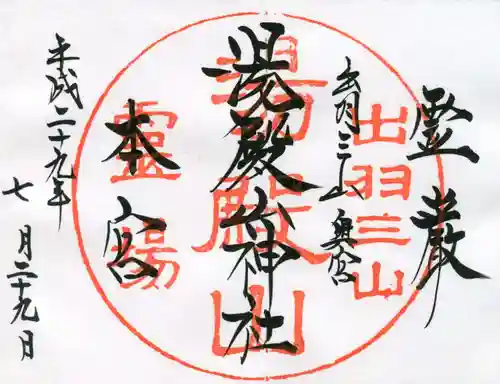 霊巌
出羽三山奥宮
湯殿山神社
本宮
平成二十九年
七月二十九日
出羽三山
湯殿山
靈場